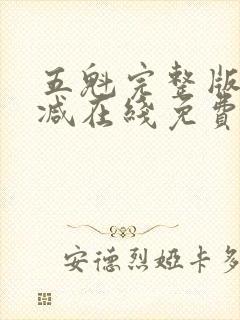 五魁完整版
减在綫免費
安德烈婭卡多